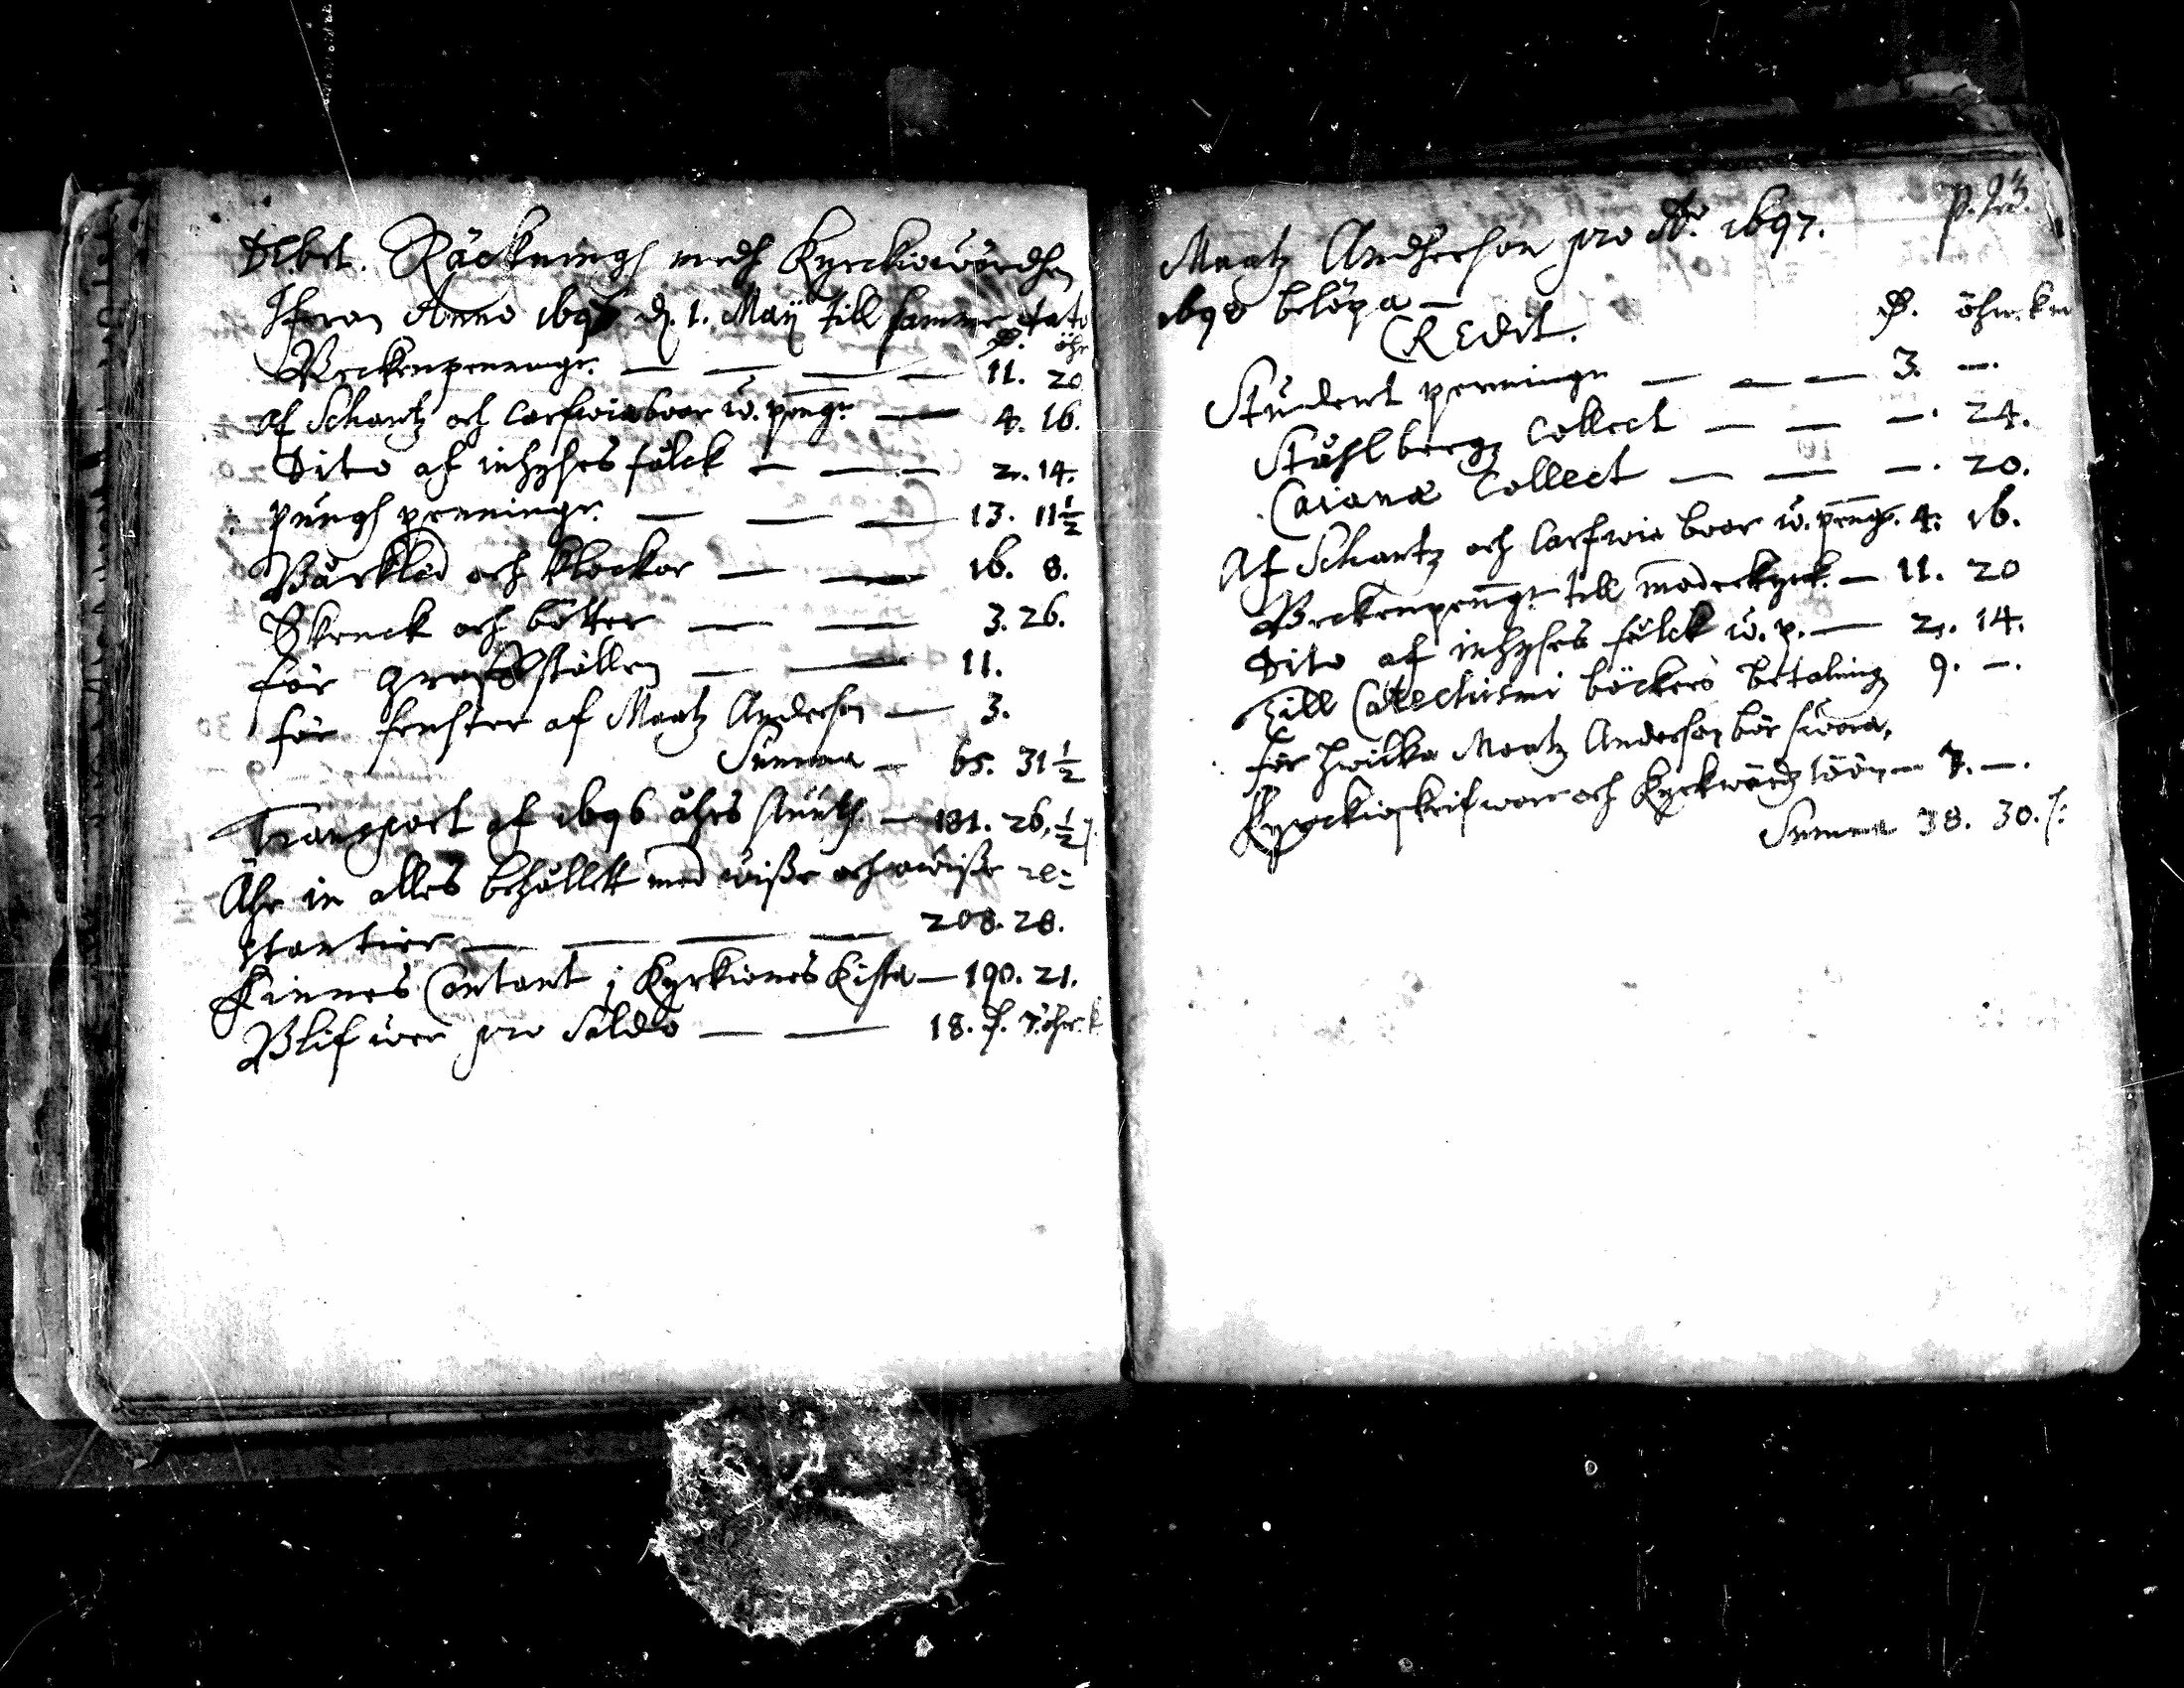 Debet. Räckningh medh Kyrckiowärdhen
Ifrån Anno 1697 d. 1. Maij till samma dato
öhr
Weckenpenningr. — — — — 11. 20
Af Schantz och Carfwiaboar w. peng: — 4. 16.
Dito af inhyses fålck — — — 2. 14.
Pungh penningr. — — — 13. 11½
Bårkläd och klockor — — 16. 8.
Skenck och bötter — — 3. 26.
för grafställen — — 11.
för fenster af Matz Anderson — 3.
Summa — 65. 31½
Transport af 1696 åhrs sluuth — 181. 26.½
Ähr in alles behållett med wisse och owisse
— — — — 208. 28.
Finnes Contant i Kyrkiones Kista — 190. 21.
Blifwer pro Saldo — — 18. 7. öhr. k
p. 93.
Matz Andherson pro Ao. 1697.
1698 belöpa —
CREdit. öhr. km
Student penningr — — — 3. —.
Ståhlbergz Collect — — —. 24.
Caiana Collect — — —. 20.
Af Schantz och Carfwia boar w. pengr. 4. 16.
Weckenpengr till moderkyrk. — 11. 20
Dito af inhyses fålck w. p. — 2. 14.
Till Catechismi böckers betalning 9. —.
för hwilka Matz Anderson bör swara,
Kyrckioskrifware och Kyrckwärdz löön — 7. —.
Summa 38. 30.